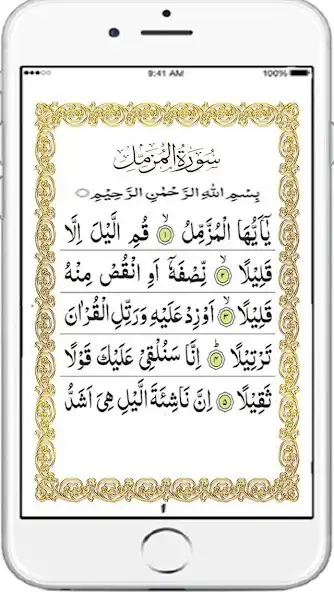 9:41 AM 100%
سُورَةُ الْمُزَّمِّل
بِسْمِ اللّٰهِ الرَّحْمٰنِ الرَّحِيْمِ
يٰٓاَيُّهَا الْمُزَّمِّلُ ۙ﴿۱﴾ قُمِ الَّيْلَ اِلَّا
قَلِيْلًا ۙ﴿۲﴾ نِّصْفَهٗۤ اَوِ انْقُصْ مِنْهُ
قَلِيْلًا ۙ﴿۳﴾ اَوْ زِدْ عَلَيْهِ وَرَتِّلِ الْقُرْاٰنَ
تَرْتِيْلًا ؕ﴿۴﴾ اِنَّا سَنُلْقِيْ عَلَيْكَ قَوْلًا
ثَقِيْلًا ﴿۵﴾ اِنَّ نَاشِئَةَ الَّيْلِ هِيَ اَشَدُّ